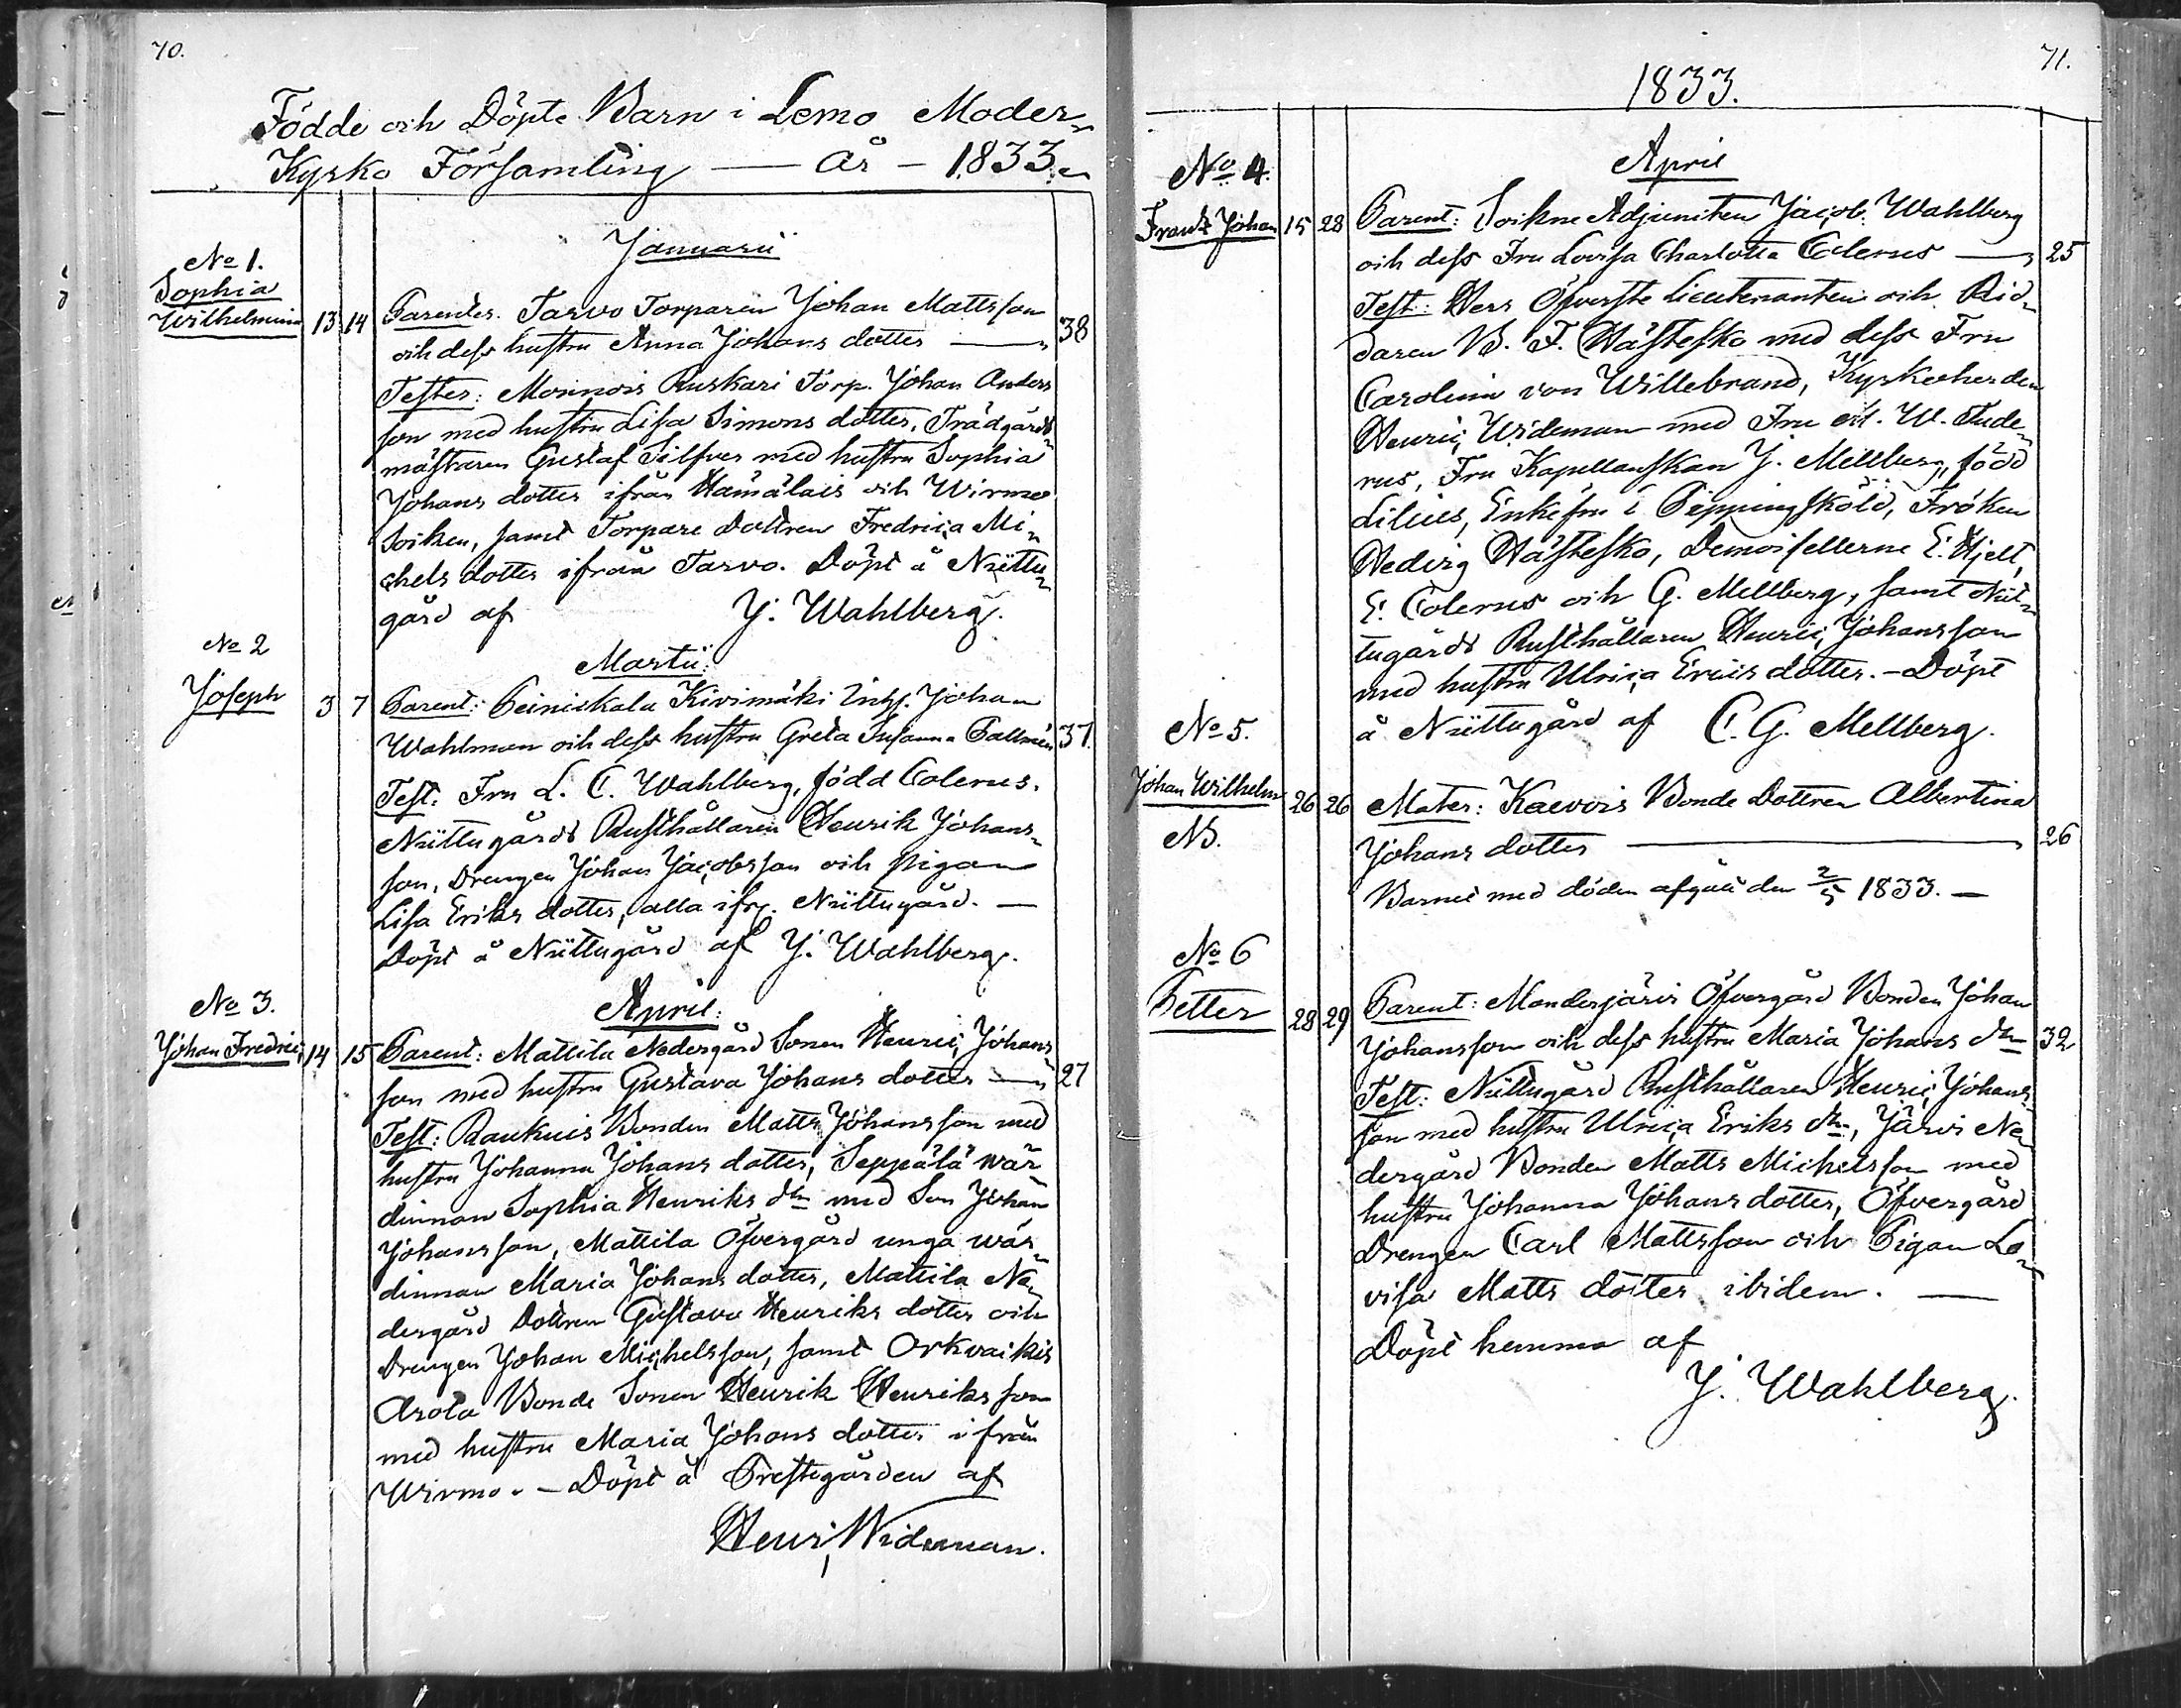 70.
Födde och Döpte Barn i Lemo Moder-
Kyrko Församling — År — 1833.
Januarii
No 1.
Sophia
Wilhelmina 13 14 Parentes. Tarvo Torparen Johan Mattsson
och dess hustru Anna Johans dotter — 38
Testes: Monnois Ruskari Torp. Johan Anders
son med hustru Lisa Simons dotter, Trädgårds
mästaren Gustaf Silfver med hustru Sophia
Johans dotter ifrån Hämäläis och Wirmo
Socken, samt Torpare Dottren Fredrica Mi-
chels dotter ifrån Tarvo. Döpt å Niittu-
gård af J. Wahlberg.
Martii:
No 2
Joseph 3 7 Parent: Peiniskala Kivimäki Inhs. Johan
Wahlman och dess hustru Greta Susanna Pallmén 37.
Test: Fru L. C. Wahlberg, född Colerus.
Niittugårds Rusthållaren Henrik Johans-
son, Drengen Johan Jacobsson och pigan
Lisa Eriks dotter, alla ifr. Niittugård. —
Döpt å Niittugård af J. Wahlberg.
April:
No 3.
Johan Fredric 14 15 Parent: Mattila Nedergård Sonen Henric Johans
son med hustru Gustava Johans dotter — 27
Test: Raukuis Bonden Matts Johansson med
hustru Johanna Johans dotter, Seppälä wär
dinnan Sophia Henriks dtr med Son Johan
Johansson, Mattila Öfvergård unga wär-
dinnan Maria Johans dotter, Mattila Ne-
dergård Dottren Gustava Henriks dotter och
Drengen Johan Michelsson, samt Orkvaikis
Arola Bonde Sonen Henrik Henriksson
med hustru Maria Johans dotter ifrån
Wirmo. — Döpt å Prestegården af
Henric Wideman.
71.
1833.
April
No 4.
Frantz Johan 15 28 Parent: Sockne Adjuncten Jacob Wahlberg
och dess Fru Lovisa Charlotta Colerus — 25
Test: Herr Öfverste Lieutenanten och Rid-
daren B. F. Hästesko med dess Fru
Carolina von Willebrand, Kyrkoherden
Henric Wideman med Fru M. W. Tude-
rus, Fru Kapellanskan J. Mellberg, född
Lilius, Enkefru C Pippingsköld, Fröken
Hedvig Hästesko, Demoisellerne E. Hjelt,
E. Colerus och G. Mellberg, samt Niit-
tugårds Rusthållaren Henric Johansson
med hustru Ulrica Erics dotter. — Döpt
å Niittugård af C. G. Mellberg.
No 5.
Johan Wilhelm 26 26 Mater: Kaevois Bonde Dottren Albertina
NB.
Johans dotter — 26
Barnet med döden afgått den 2/5 1833. —
No 6
Petter 28 29 Parent: Monderjärvi Öfvergård Bonden Johan
Johansson och dess hustru Maria Johans dtr 32
Test: Niittugård Rusthållaren Henric Johans
son med hustru Ulrica Eriks dtr, Järvi Ne-
dergård Bonden Matts Michelsson med
hustru Johanna Johans dotter, Öfvergård
Drengen Carl Mattsson och Pigan Lo-
visa Matts dotter ibidem. —
Döpt hemma af
J. Wahlberg.